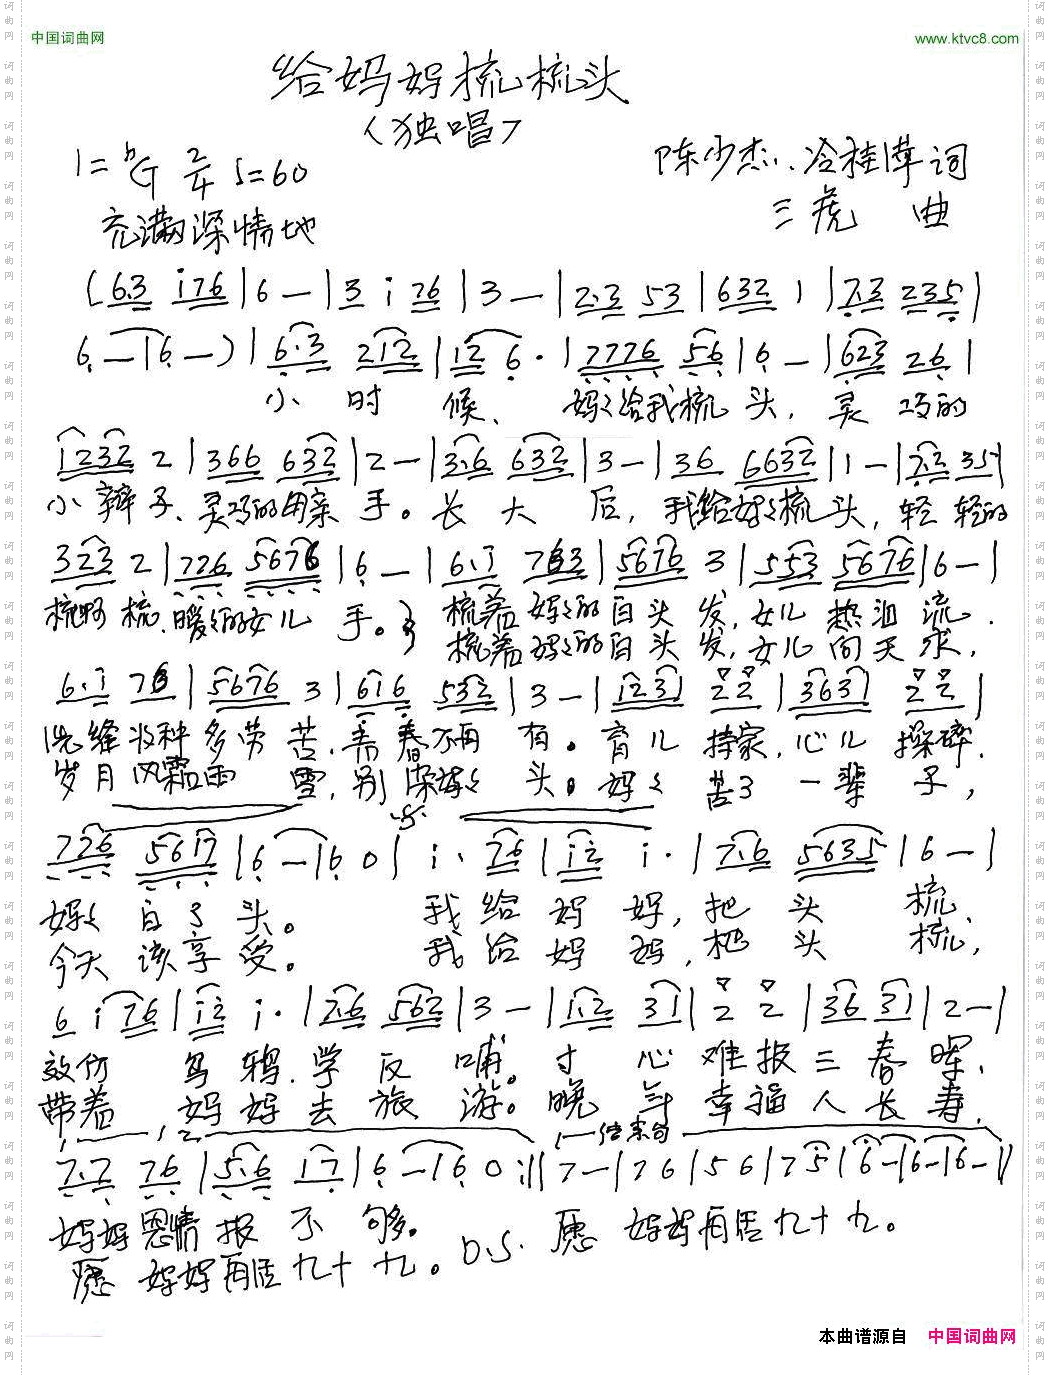 中国词曲网
www.ktvc8.com
给妈妈梳梳头
(独唱)
1=♭G 2/4 ♩=60
陈少杰、冷桂萍 词
充满深情地
三虎 曲
(6.3 i76|6 —|3 i 76|3 —|2.3 53|632 1|7.3 235|
6 —|6 —)|6.3 212|12 6.|7776 56|6 —|623 26|
小 时 候、 妈妈给我梳 头, 灵 巧的
1232 2|366 632|2 —|3.6 632|3 —|36 6632|1 —|2.2 35|
小 辫 子、灵巧的用亲 手。长 大 后, 我给妈妈梳 头, 轻 轻的
323 2|726 5676|6 —|6.i 763|5676 3|553 5676|6 —|
梳啊 梳、暖暖的女儿 手。 梳着妈妈的白头 发, 女儿 热泪 流.
梳着妈妈的白头 发, 女儿 问天 求,
6.i 76|5676 3|616 532|3 —|1231 2 2|3631 2 2|
洗缝收种 多劳 苦、青春不再 有。育儿 持家, 心儿 操碎.
岁月风霜雨 雪, 别染妈妈 头。妈妈 苦了 一辈 子,
726 5617|6 —|6 0|i. 76|i2 i.|7.6 5635|6 —|
妈妈 白了 头。 我给妈妈, 把头 梳、
今天 该享 受。 我给妈妈, 把头 梳,
6 i 76|i2 i.|7.6 562|3 —|1.2 31|2 2|36 31|2 —|
效仿 乌鸦、学反 哺。寸 心难报三春晖、
带着 妈妈去旅 游。晚 年幸福人长寿.
1 2 结束句
7.7 76|5.6 17|6 —|6 0:||7 —|76|56|75|6 —|6 —|6 —||
妈妈恩情报 不 够。
愿 妈妈再活九十 九。D.S. 愿 妈妈再活九十九。
本曲谱源自 中国词曲网